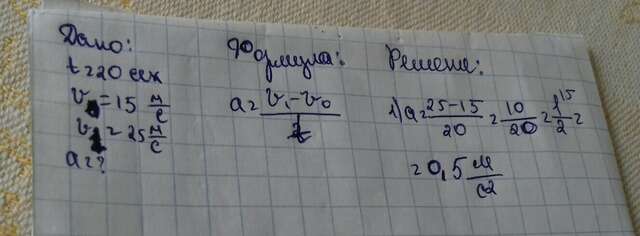 Дано:
t=20 сек
v₀=15 м/с
v₁=25 м/с
a=?
Формула:
a=(v₁-v₀)/t
Решение:
1) a=(25-15)/20=10/20=1/2=
=0,5 м/с2